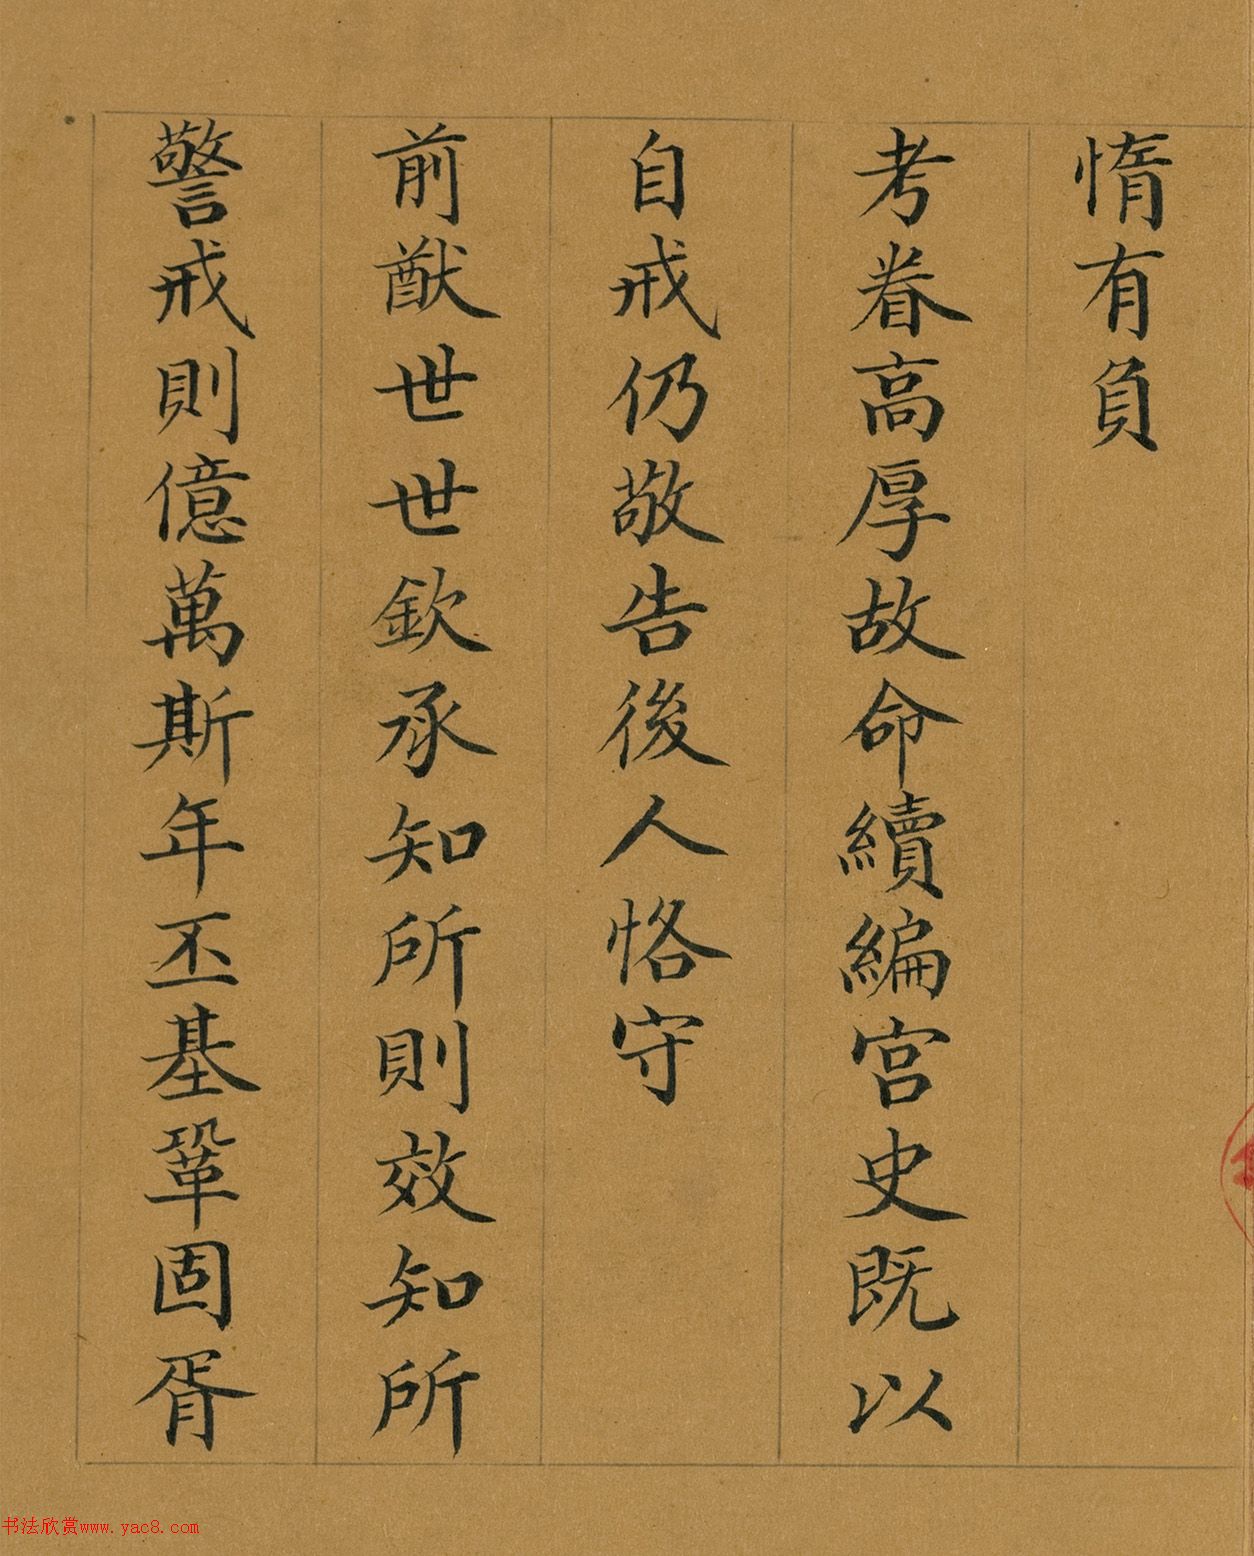 惰有負
考眷高厚故命續編宮史既以
自戒仍敬告後人恪守
前猷世世欽承知所則效知所
警戒則億萬斯年丕基鞏固胥
书法欣赏www.yac8.com